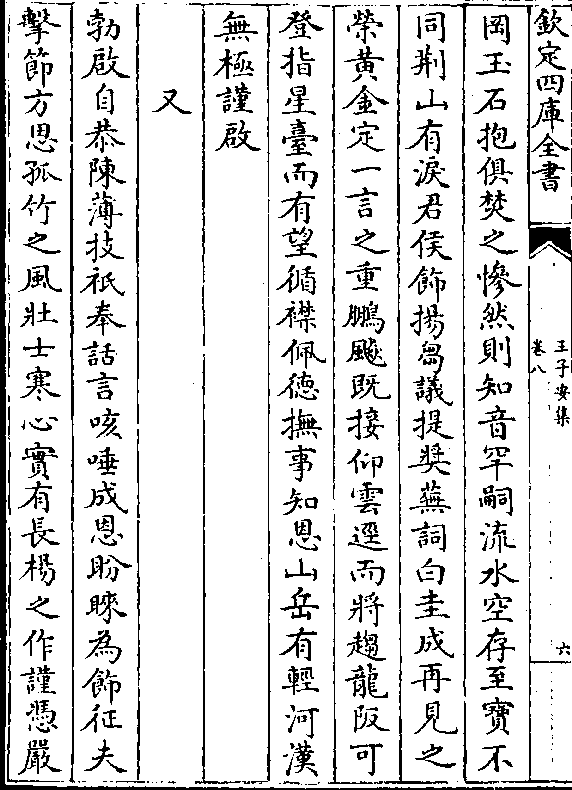 欽定四庫全書
王子安集
卷八
六
岡玉石抱俱焚之慘然則知音罕嗣流水空存至寶不
同荆山有淚君侯飾揚芻議提奬蕪詞白圭成再見之
榮黄金定一言之重鵬飈既接仰雲逕而將趨龍阪可
登指星臺而有望循襟佩德撫事知恩山岳有輕河漢
無極謹啟
又
勃啟自恭陳薄技祇奉話言咳唾成恩盼睞為飾征夫
擊節方思孤竹之風壯士寒心實有長楊之作謹憑嚴